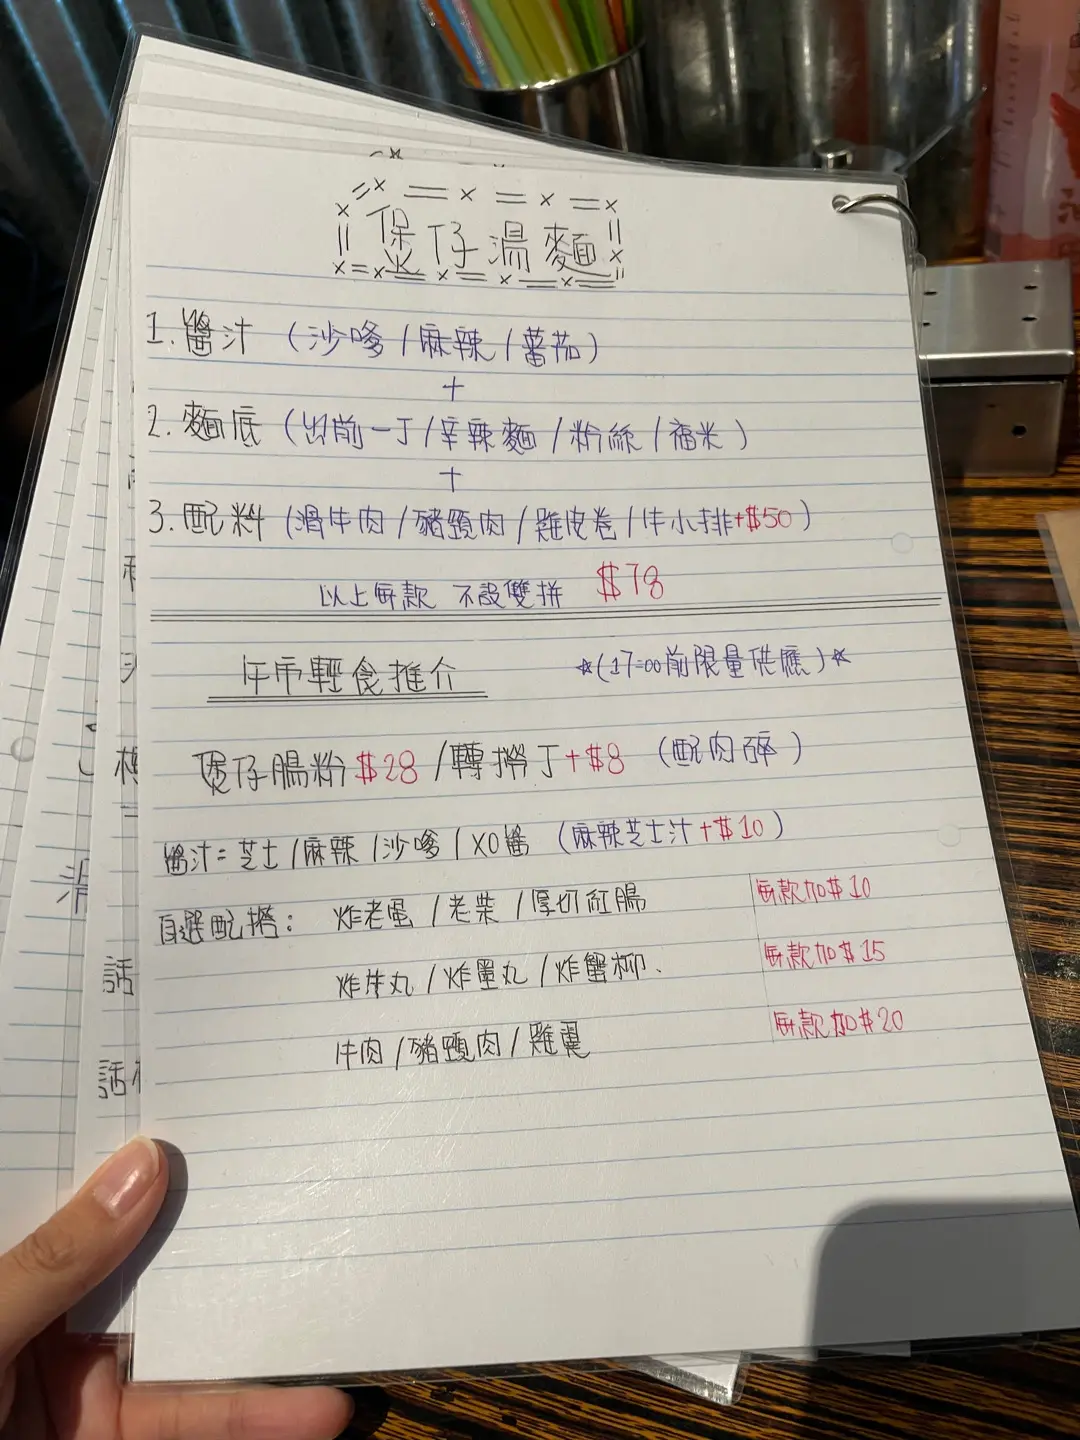 煲仔湯麵
1. 醬汁 (沙嗲 / 麻辣 / 蕃茄)
+
2. 麵底 (出前一丁 / 辛辣麵 / 粉絲 / 福米)
+
3. 配料 (滑牛肉 / 豬頸肉 / 雞皮卷 / 牛小排+$50)
以上每款 不設雙拼 $78
午市輕食推介 ☆(17:00前限量供應)☆
煲仔腸粉 $28 / 轉撈丁+$8 (配肉碎)
醬汁= 芝士 / 麻辣 / 沙嗲 / XO醬 (麻辣芝士汁+$10)
自選配搭: 炸老蛋 / 老柴 / 厚切紅腸 每款加$10
炸牛丸 / 炸墨丸 / 炸蟹柳、 每款加$15
牛肉 / 豬頸肉 / 雞翼 每款加$20
話
話